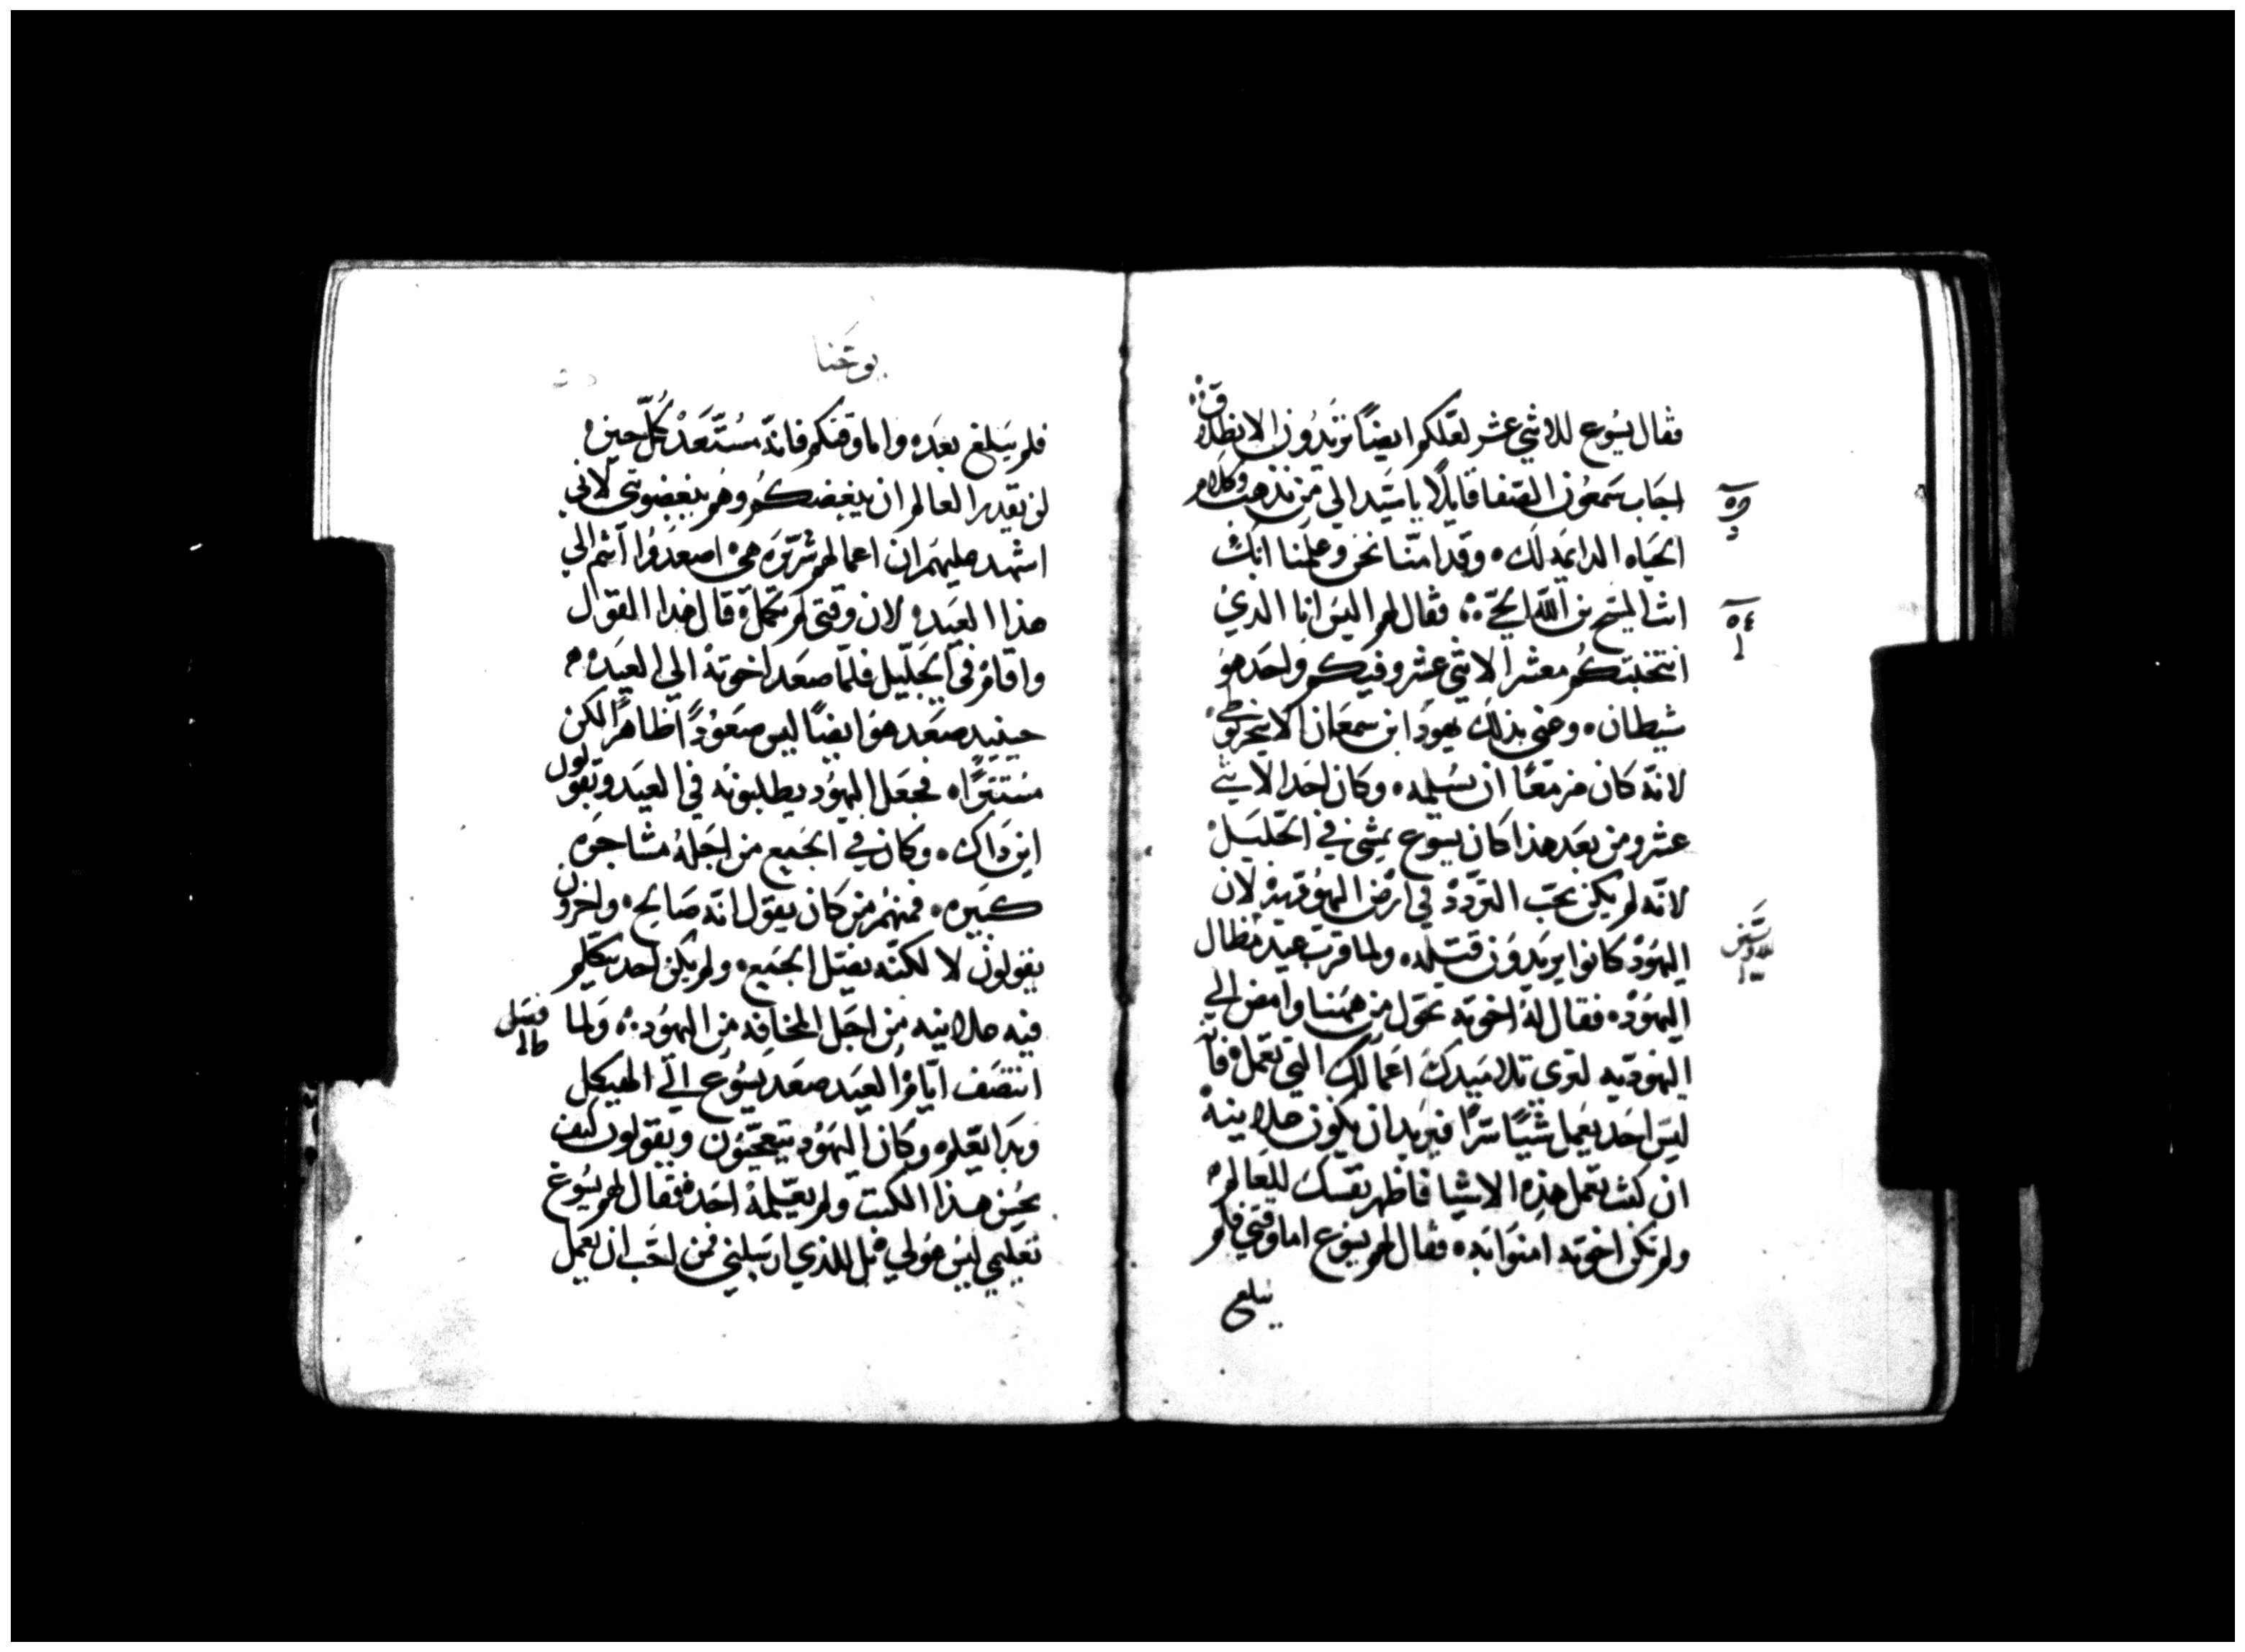 فقال يسوع للاثني عشر لعلكم ايضًا تريدون الانطلاق
اجاب سمعون الصفا قايلًا يا سيد الي من نذهب وكلام
الحياه الدايمه لك ۰ وقد امنا نحن وعلمنا انك
انت المسيح بن الله الحي ۰۰ فقال لهم اليس انا الذي
انتخبتكم معشر الاثني عشر وفيكم واحد هو
شيطان ۰ وعني بذلك يهودا بن سمعان الاسخريوطي
لانه كان مزمعًا ان يسلمه ۰ وكان احد الاثني
عشر ومن بعد هذا كان يسوع يمشي في الجليل
لانه لم يكن يحب التردد في ارض اليهوديه لان
اليهود كانوا يريدون قتله ۰ ولما قرب عيد مظال
اليهود ۰ فقال له اخوته تحول من ههنا وامض الي
اليهوديه لتري تلاميدك اعمالك التي تعمل فانه
ليس احد يعمل شيًا سرًا فيريد ان يكون علانيه
ان كنت تعمل هذه الاشيا فاظهر نفسك للعالم
ولم تكن اخوته امنوا به ۰ فقال لهم يسوع اما وقتي فلم
يبلغ
يوحنا
فلم يبلغ بعد ۰ واما وقتكم فانه مستعد كل حين ۰
لن يقدر العالم ان يبغضكم وهم يبغضوني لاني
اشهد عليهم ان اعمالهم شريره هي ۰ اصعدوا انتم الي
هذا العيد ۰ لان وقتي لم يكمل ۰ قال هدا القول
واقام في الجليل فلما صعد اخوته الي العيد ۰
حينيد صعد هو ايضًا ليس صعودًا ظاهرًا لكن
مستترًا ۰ فجعل اليهود يطلبونه في العيد وتقولون
اين داك ۰ وكان في الجمع من اجله مشاجره
كبيره ۰ فمنهم من كان يقول انه صالح ۰ واخرون
يقولون لا لكنه يضل الجمع ۰ ولم يكن احد يتكلم
فيه علانيه من اجل المخافه من اليهود ۰۰ ولما فصل
انتصف ايام العيد صعد يسوع الي الهيكل
وبدا يعلم ۰ وكان اليهود يتعجبون ويقولون كيف
يحسن هذا الكتب ولم يعلمه احد ۰ فقال لهم يسوع
تعليمي ليس هو لي بل للذي ارسلني فمن احب ان يعمل